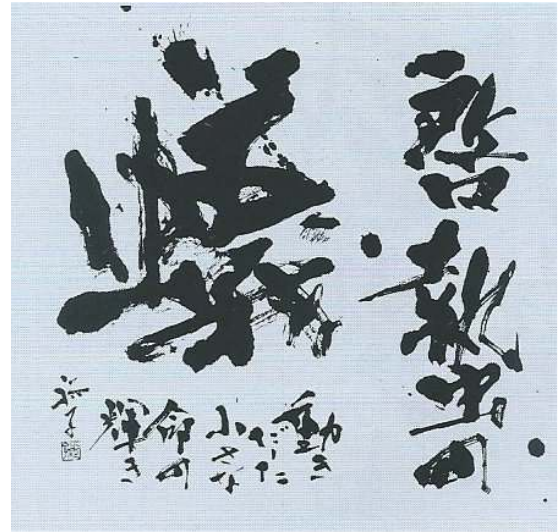 啓蟄の
蟻
動き
だした
小さな
命の
輝き